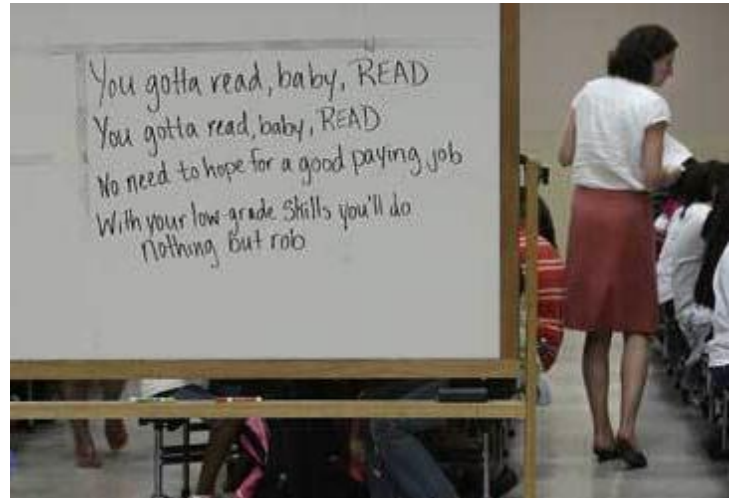 You gotta read, baby, READ
You gotta read, baby, READ
No need to hope for a good paying job
With your low-grade skills you'll do
nothing but rob